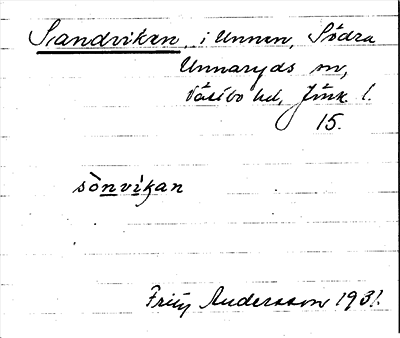 Sandviken, i Unnen, Södra
Unnaryds sn,
Västbo hd, Jönk. l.
15.
sònvìkan
Fritz Andersson 1931.